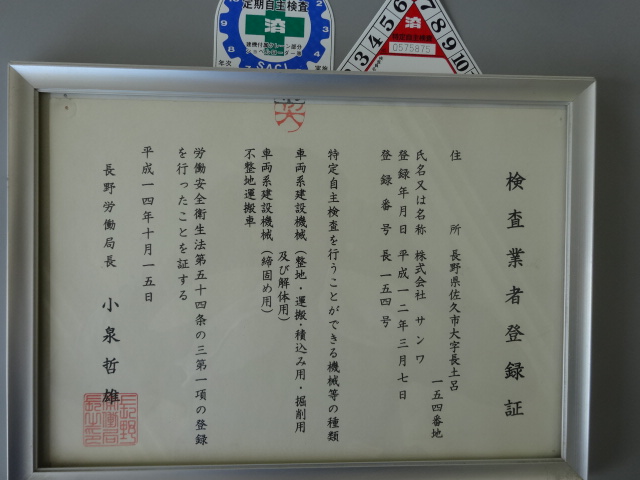 定期自主検査
済
建機付きクレーン部分
ショベルローダー等
年次
SACL
3
4
5
6
7
8
9
10
済
特定自主検査
0575875
検査業者登録証
住所 長野県佐久市大字長土呂
一五四番地
氏名又は名称 株式会社 サンワ
登録年月日 平成一二年三月七日
登録番号 長一五四号
特定自主検査を行うことができる機械等の種類
車両系建設機械(整地・運搬・積込み用・掘削用
及び解体用)
車両系建設機械(締固め用)
不整地運搬車
労働安全衛生法第五十四条の三第一項の登録
を行ったことを証する
平成一四年十月一五日
長野労働局長 小泉哲雄